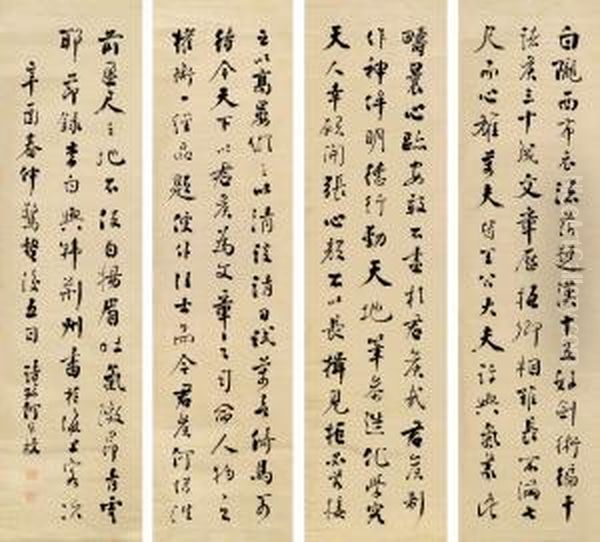 白隴西布衣流落楚漢十五好劍術徧干
諸侯三十成文章歷抵卿相雖長不滿七
尺而心雄萬夫皆王公大夫許與氣義此
疇曩心跡安敢不盡於君侯哉君侯制
作神侔明德行動天地筆參造化學究
天人幸願開張心顏不以長揖見拒必若接
之以高宴縱之以清談請日試萬言倚馬可
待今天下以君侯為文章之司命人物之
權衡一經品題便作佳士而今君侯何惜階
前盈尺之地不使白揚眉吐氣激昂青雲
耶節錄李白與韓荊州書於滬上客次
辛酉春仲驚蟄後五日